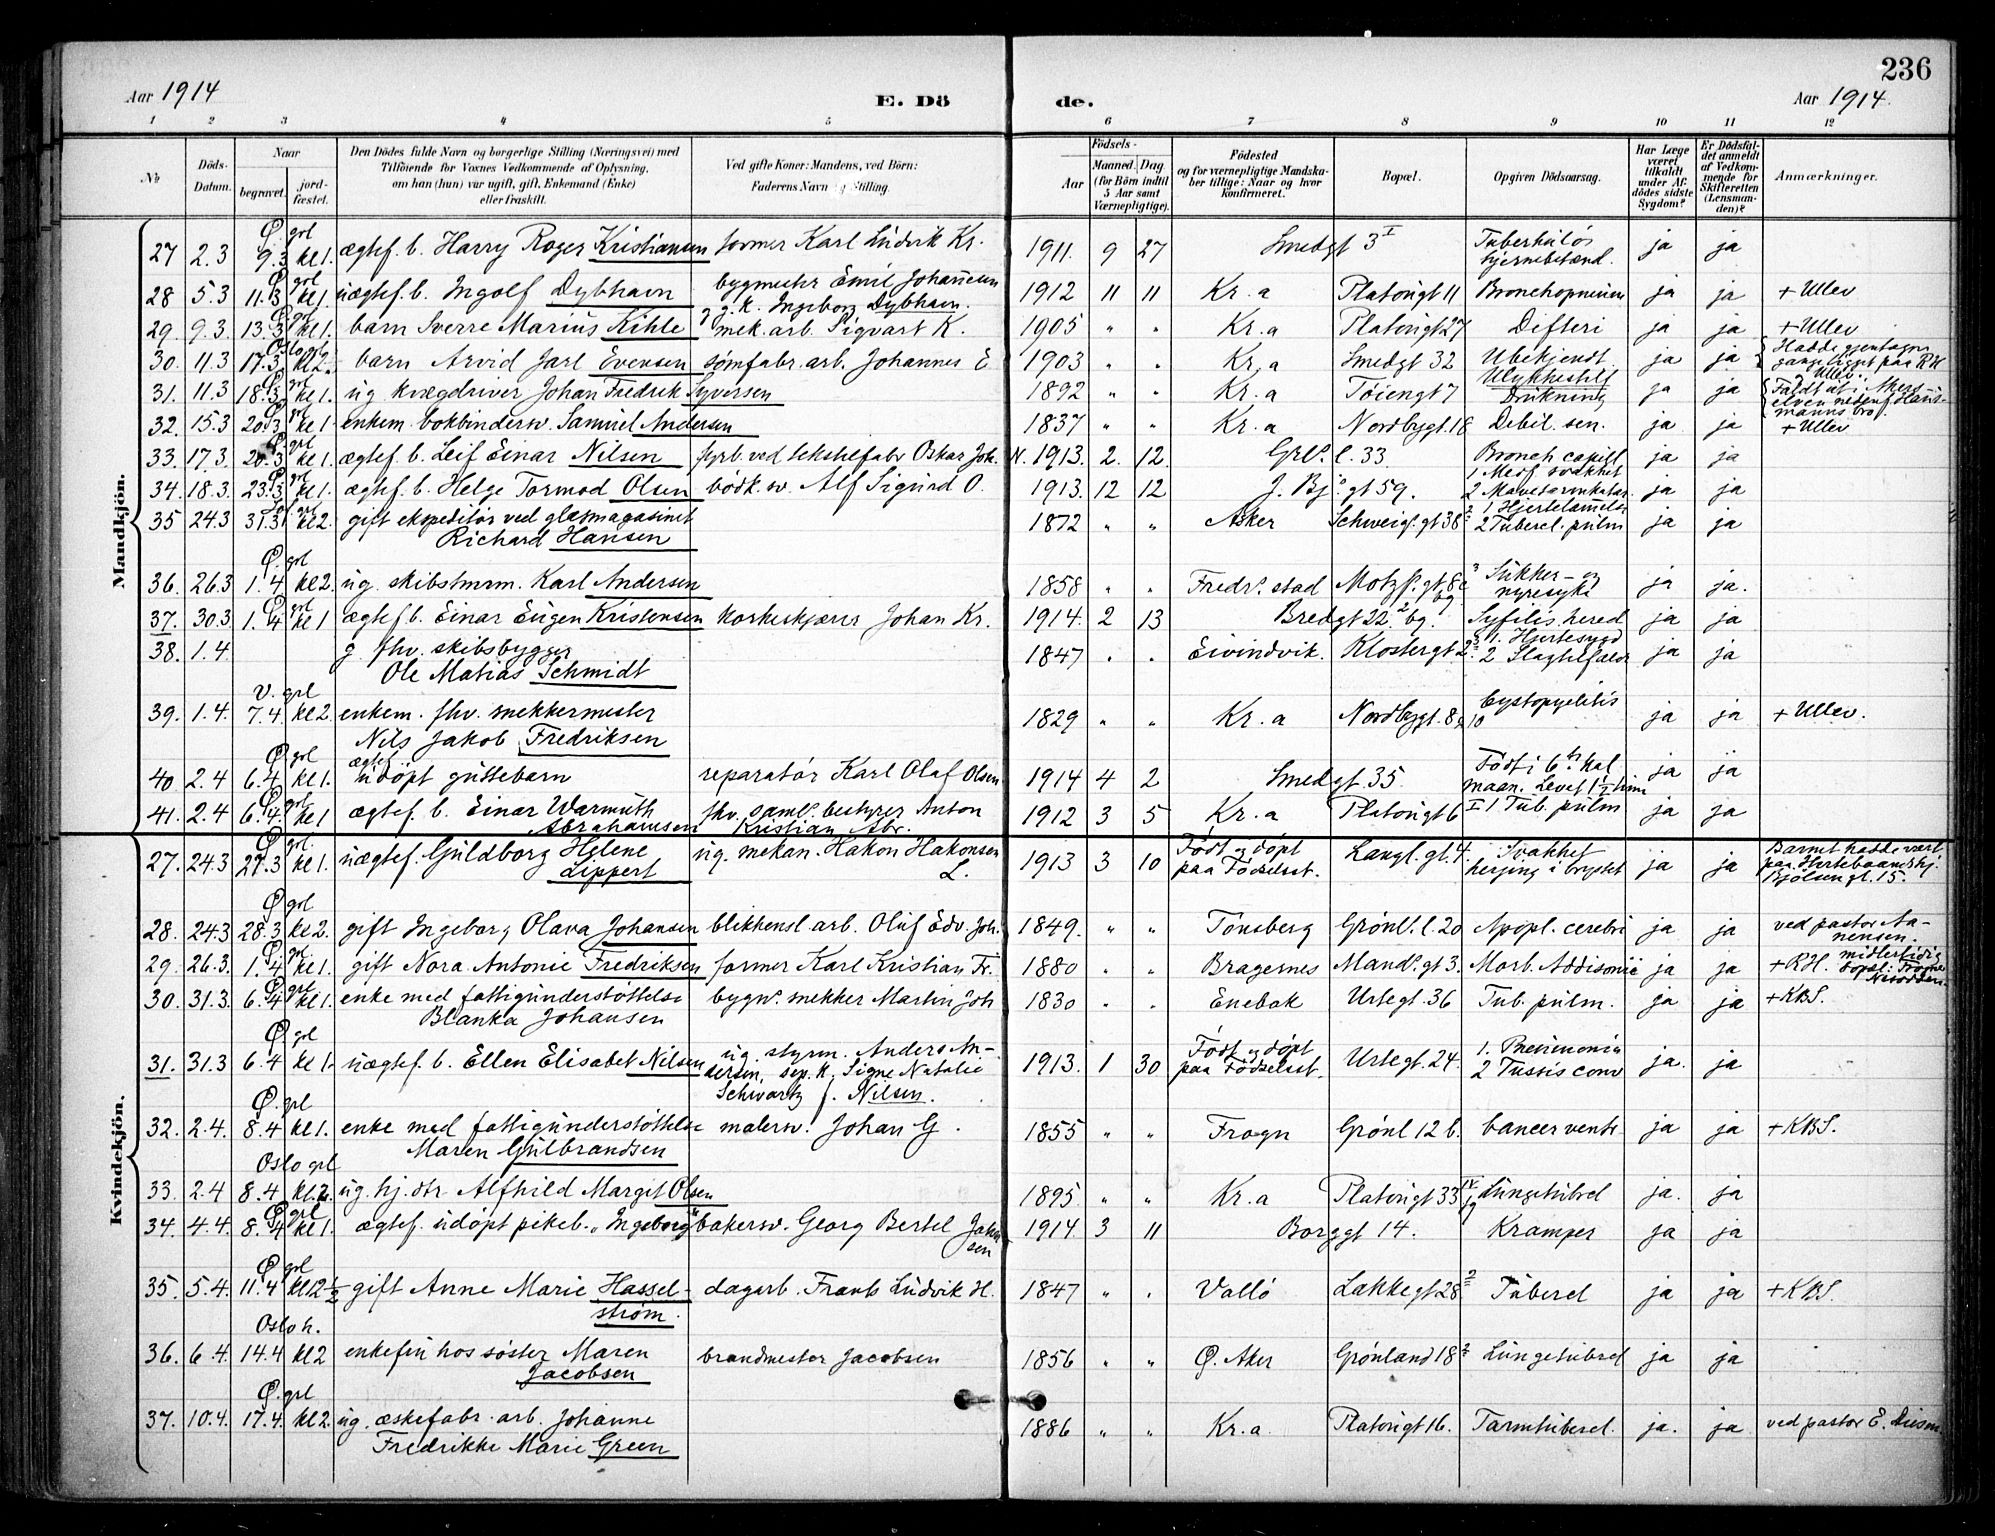 236
Aar 1914
E. Dö
de.
Aar 1914.
1 2 3 4 5 6 7 8 9 10 11 12
No
Döds-Datum.
Naar
begravet.
jord-fæstet.
Den Dödes fulde Navn og borgerlige Stilling (Næringsvei) med
Tilföiende for Voxnes Vedkommende af Oplysning,
om han (hun) var ugift, gift, Enkemand (Enke)
eller fraskilt.
Ved gifte Koner: Mandens, ved Börn:
Faderens Navn og Stilling.
Födsels-
Aar
Maaned. Dag.
(for Börn indtil
5 Aar samt
Værnepligtige).
Födested
og for værnepligtige Mandska-
ber tillige: Naar og hvor
konfirmeret.
Bopæl.
Opgiven Dödsaarsag.
Har Læge
været
tilkaldt
under Af-
dödes sidste
Sygdom?
Er Dödsfal-
det anmeldt
af Vedkom-
mende for
Skifteretten
(Lensman-
den)?
Anmærkninger.
Mandkjön.
Ø. grl
27 2.3 9.3 kl 1. ægtef. b. Harry Roger Kristiansen former Karl Ludvik Kr. 1911. 9 27 Smedgt 3 I Tuberkuløs hjernebetænd. ja ja
Ø. grl
28 5.3 11.3 kl 1. uægtef. b. Ingolf Dybhavn bygmester Emil Johannesen og p. k. Ingeborg Dybhavn. 1912 11 11 Kr.a Platougt 11 Bronchopneum ja ja + Ullev
Ø. grl
29. 9.3 13.3 kl 1. barn Sverre Marius Kihle mek. arb. Sigvart K. 1905 " " Kr.a Platougt 27 Difteri ja ja + Ullev
Oslo grl
30. 11.3 17.3 kl 2. barn Arvid Jarl Evensen sømfabr. arb. Johannes E 1903 " " Kr.a Smedgt 32 Ubekjendt ja ja Hadde gjentagne gange ligget paa RH Ullev.
Ø. grl
31. 11.3 18.3 kl 1. ug kvægdriver Johan Fredrik Syversen 1892 " " Kr.a Tøiengt 7 Ulykkestilf Drukning ja ja Faldt ut i Akers-elven nedenf Haus-manns bro.
Ø. grl
32. 15.3 20.3 kl 1. enkem. bokbindersv. Samuel Andersen 1837 " " Kr.a Nordbygt. 18 Debil. sen. ja ja + Ullev
Ø. grl
33. 17.3. 20.3 kl 1. ægtef. b. Leif Einar Nilsen fyrb. ved tekstilfabr Oskar Joh. N. 1913. 2. 12. Grls. l. 33. Bronch capill ja ja
Ø. grl
34. 18.3. 23.3 kl 1. ægtef. b. Helge Tormod Olsen bødk. sv. Alf Sigurd O. 1913. 12 12 J. Bj.s gt 59. 1 Medf svakhet 2 Mavetarmkatar. ja ja
35 24.3 31.3 kl 2. gift ekspeditør ved glasmagasinet 1872 " " Asker Schweig. gt 38 2 1 Hjertelamelse 2 Tubercl. pulm ja ja
Richard Hansen
Ø. grl
36. 26.3 1.4 kl 2. ug. skibstmrm. Karl Andersen 1858 " " Fredr. stad Motzf. gt 8c 3 bg Sukker- og nyresyke ja ja.
Ø. grl
37. 30.3 1.4 kl 1 ægtef b. Einar Eugen Kristensen korkeskjærer Johan Kr. 1914. 2 13 Bredgt 22. 2 bg. Syfilis hered ja ja
38. 1.4. g fhv. skibsbygger 1847 " . Eivindvik. Klostergt 2. 3 1. Hjertesygd 2 Slagtilfælde ja ja
Ole Matias Schmidt
V. grl
39. 1.4. 7.4. kl 2 enkem. fhv. snekkermester 1829 " " Kr.a Nordbygt. 8 Cystopyelitis ja ja + Ullev.
Nils Jakob Fredriksen
Ø. grl
40 2.4 6.4 kl 1. ægtef. udøpt guttebarn reparatør Karl Olaf Olsen 1914 4 2 Smedgt 35. Født i 6te kal. maan. Levet 1 1/2 tim ja ja
Ø. grl
41. 2.4 6.4. kl 1 ægtef. b. Einar Warmuth Abrahamsen fhv. saml. bestyrer Anton Kristian Abr. 1912 3 5 Kr.a Platougt 6 I 1 Tub. pulm ja ja
Kvindekjön.
Ø. grl.
27. 24.3 27.3 kl 1. uægtef. Guldborg Helene Lippert ug. mekan. Hakon Hakonsen L. 1913 3 10 Født og døpt paa Fødselsst. Langl. gt. 4. Svakhet herjing i brystet ja ja Barnet hadde vært paa Hertebaandshj. Bjølsengt. 15.
Ø grl
28. 24.3 28.3 kl 2. gift Ingeborg Olava Johansen blikkensl. arb. Oluf Edv. Joh. 1849. " " Tønsberg Grønl. l. 20 Apopl. cerebri ja ja ved pastor Aa-nensen.
Ø. grl
29. 26.3. 1.4 kl 1. gift Nora Antonie Fredriksen former Karl Kristian Fr. 1880 " " Bragernes Mands. gt 3. Morb. Addisonii ja ja + RH. midlertidig bopæl: Frogner Nesodden.
Ø. grl
30. 31.3. 6.4 kl 1. enke med fattigunderstøttelse bygn. snekker Martin Joh 1830 " " Enebak Urtegt. 36 Tub. pulm. ja ja + KBS.
Blanka Johansen
Ø. grl
31. 31.3 6.4 kl 1. uægtef. b. Ellen Elisabet Nilsen ug. styrm. Anders An-dersen, sep. k. Signe Natalie Schwartz f. Nilsen. 1913. 1 30 Født og døpt paa Fødselsst. Urtegt. 24. 1. Pneumonia 2 Tussis conv ja. ja
Ø. grl
32. 2.4. 8.4 kl 1. enke med fattigunderstøttelse malersv. Johan G. 1855 " " Frogn Grønl 12 b. Cancer ventr ja ja + KBS.
Maren Gulbrandsen
Oslo grl
33. 2.4 8.4 kl. 2. ug. hj. dtr Alfhild Margit Olsen 1895 " " Kr.a Platougt 33 IV bg Lungetubrcl ja. ja
Ø. grl
34. 4.4. 8.4 kl 1. ægtef. udøpt pikeb. "Ingeborg" bakersv. Georg Bertel Johansen 1914 3 11 Borggt 14. Kramper ja ja
Ø. grl
35. 5.4. 11.4 kl 12 1/2 gift Anne Marie Hassel-strøm. dagarb. Frants Ludvik H. 1847 " . Vallø Lakkegt 28 2 Tubercl ja ja + KBS.
Oslo h.
36. 6.4. 14.4 kl 2 enkefru hos søster Maren Jacobsen brandmester Jacobsen 1856 " " Ø. Aker Grønland 18 2 Lungetubrcl ja ja
Ø. grl
37. 10.4. 17.4. kl 2. ug. æskefabr. arb. Johanne 1886 " " Kr.a Platougt 16. Tarmtubercl. ja. ja ved pastor E.
Fredrikke Marie Green